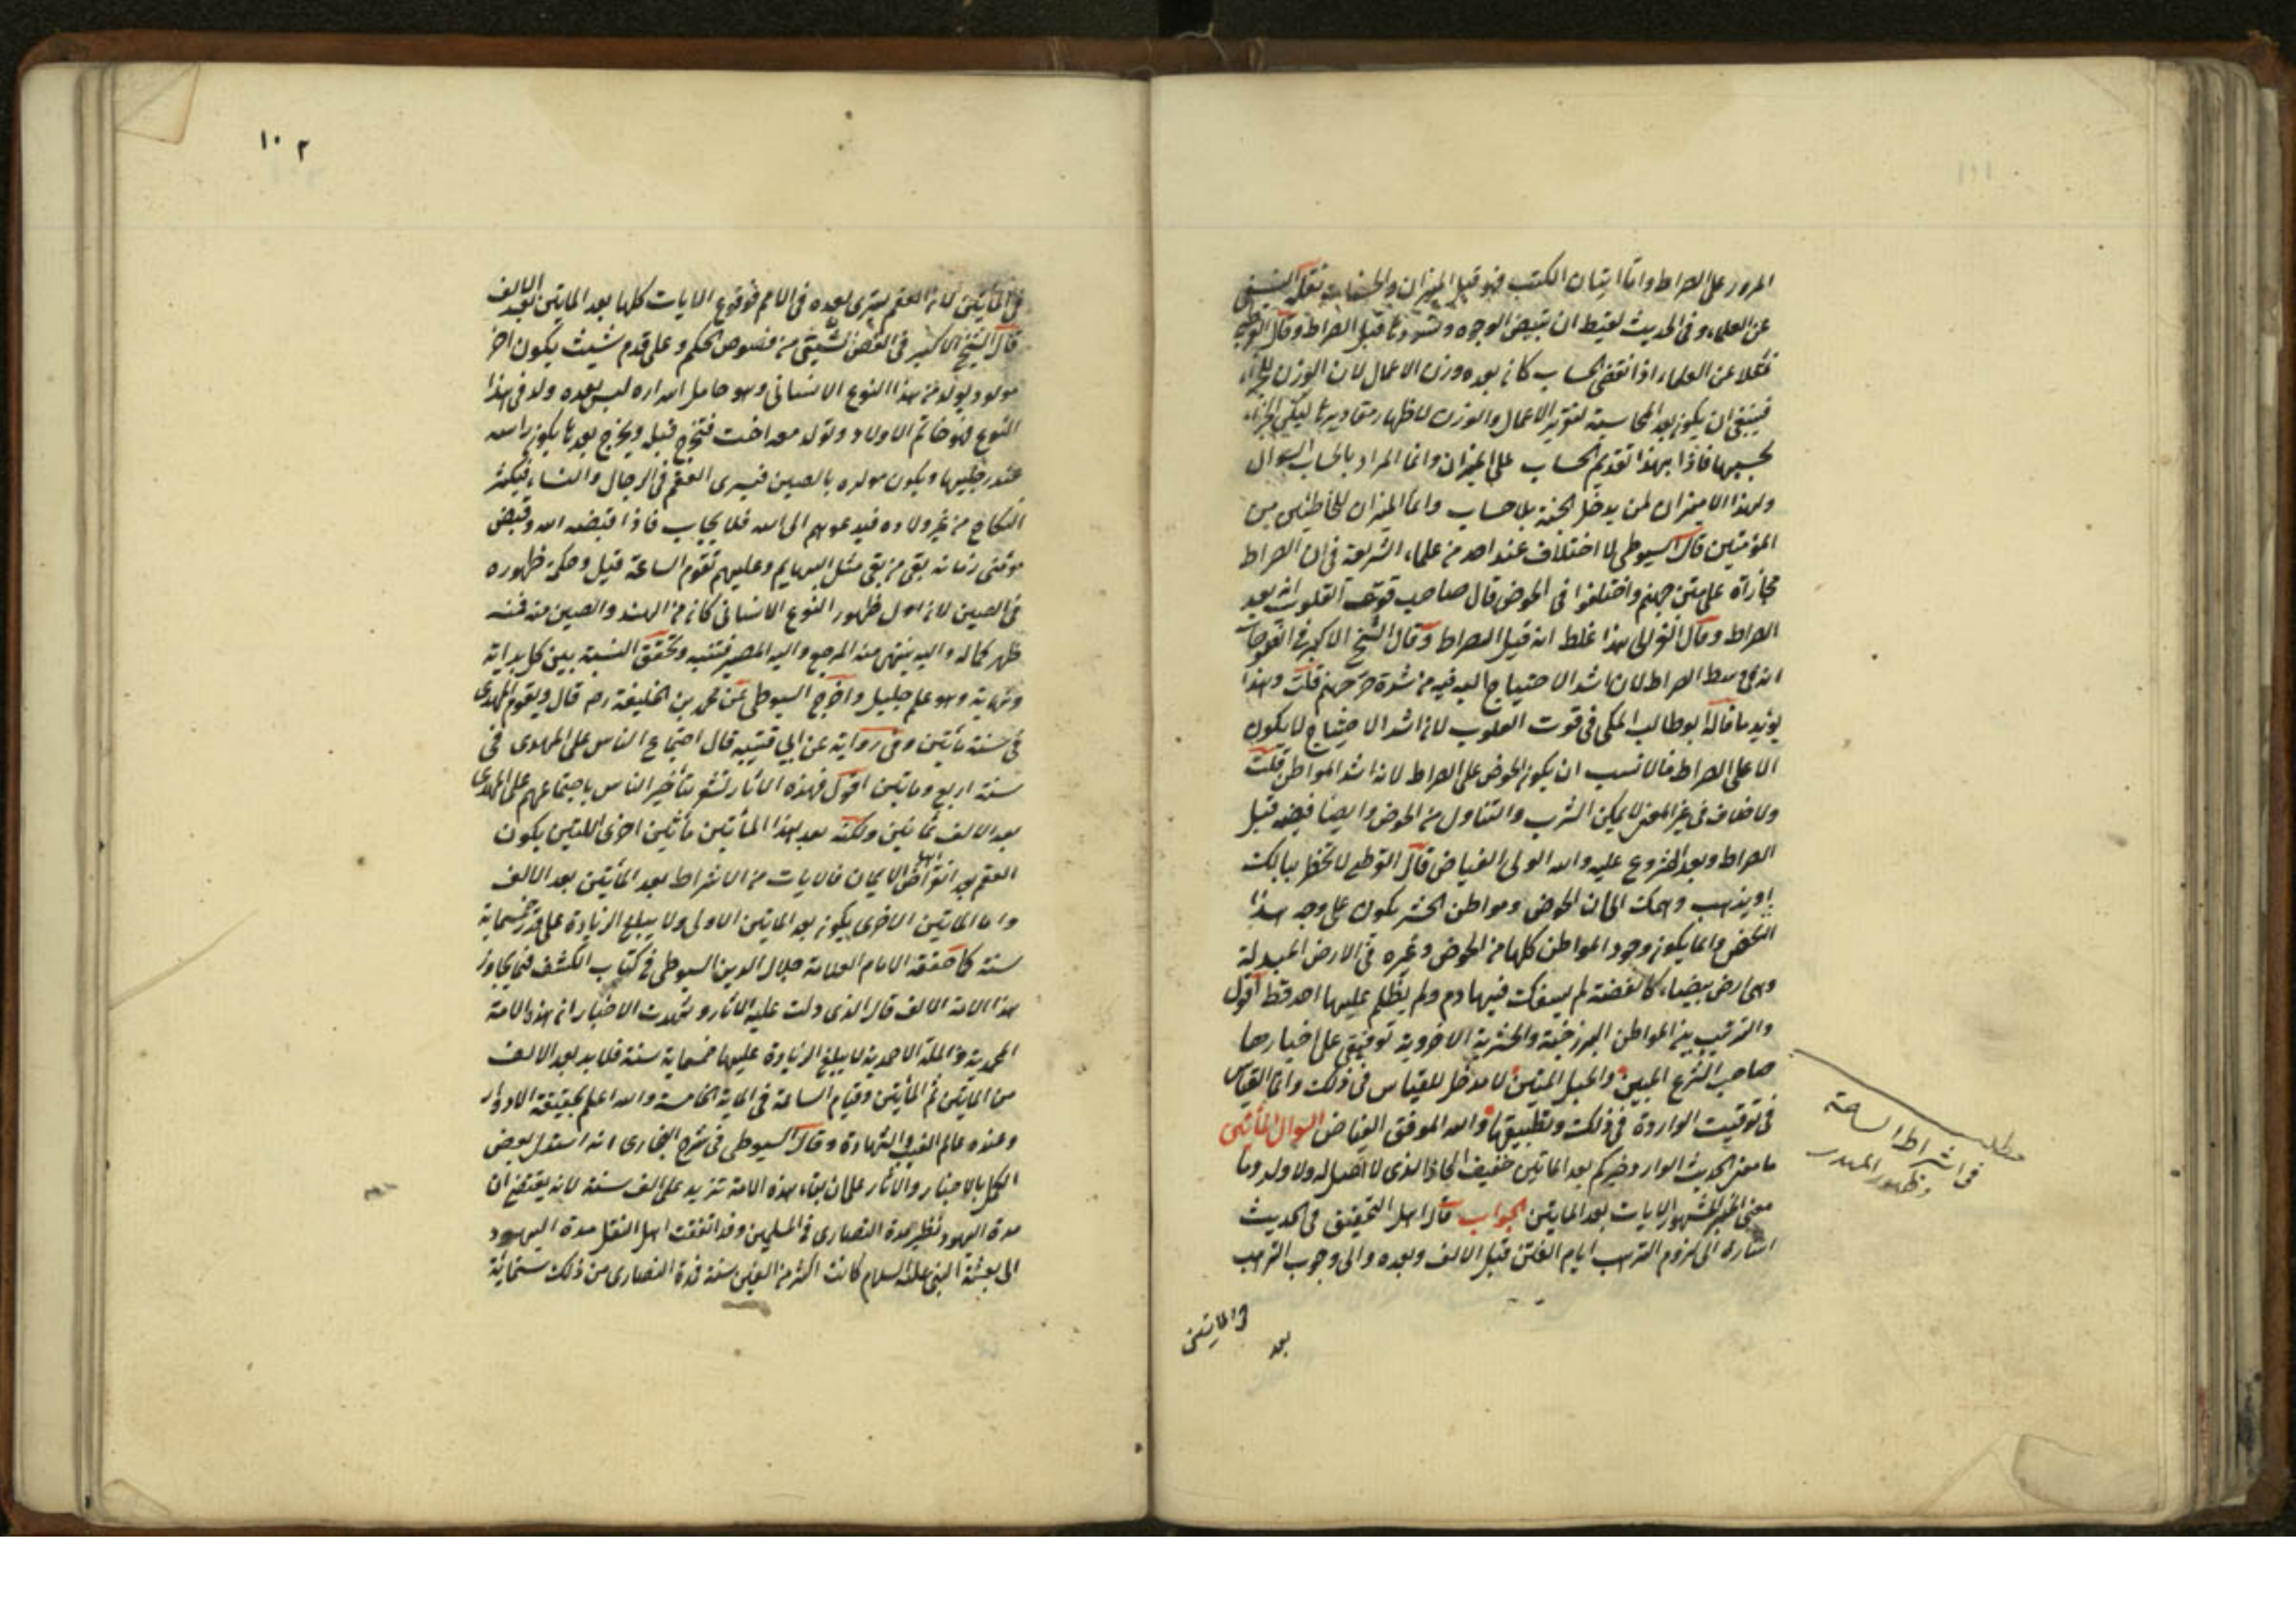 المرور على الصراط واما اتيان الكتب فهو قبل الميزان والحساب نقله النسفى
عن العلماء وفى الحديث ان تبيض الوجوه وتسودها قبل الصراط وقال القرطبى
نقلا عن العلماء اذا انقضى الحساب كان بعده وزن الاعمال لان الوزن للجزاء
فينبغى ان يكون بعد المحاسبة لتقرير الاعمال والوزن لاظهار مقاديرها ليكون الجزاء
بحسبها فاذا بهذا تقديم الحساب على الميزان وانما المراد بالحساب السوال
ولهذا لا ميزان لمن يدخل الجنة بلا حساب وانما الميزان للخاطئين من
المؤمنين قال السيوطى لا اختلاف عند احد من علماء الشريعة فى ان الصراط
مجازاة على متن جهنم واختلفوا فى الحوض قال صاحب قوت القلوب انه بعد
الصراط وقال الغزالى هذا غلط انه قبل الصراط وقال الشيخ الاكبر فى الفتوحات
انه فى وسط الصراط لان اشد الاحتياج اليه فيه من شدة حر جهنم قلت وهذا
يؤيد ما قاله ابو طالب المكى فى قوت القلوب لان اشد الاحتياج لا يكون
الا على الصراط فالانسب ان يكون الحوض على الصراط لانه اشد المواطن قلت
ولا خفاء فى غير المعنى لا يمكن الشرب والتناول من الحوض وايضا فيضه قبل
الصراط وبعد الشروع عليه والله الولى الفياض قال القرطبى لا يخطر ببالك
او يذهب وهمك الى ان الحوض ومواطن الحشر يكون على وجه هذا
الارض وانما يكون وجود المواطن كلها من الحوض وغيره فى الارض المبدلة
وهى ارض بيضاء كالفضة لم يسفك فيها دم ولم يظلم عليها احد قط اقول
والترتيب بين المواطن البرزخية والحشرية الاخروية توفيقى على اخبارها
صاحب الشرع المبين والحبل المتين لا مدخل للقياس فى ذلك وانما القياس
فى توقيت الواردة فى ذلك وتطبيقها والله الموفق الفياض السؤال المأتين
ما معنى الحديث الوارد خيركم بعد الماتين خفيف الحاذ الذى لا اهل له ولا ولد وما
معنى الخبر المشهور الايات بعد المايتين الجواب قال اهل التحقيق فى الحديث
اشارة الى لزوم الترهب ايام الفتن قبل الالف وبعده والى وجوب الترهب
بعد
فى المايتين
مطلب
فى اشراط الساعة
وظهور المهدى
١٠٢
فى المأيتين لان العقم يسرى بعده فى الامم فوقوع الايات كلها بعد المايتين بعد الالف
قال الشيخ الاكبر فى الفص الشيثى من فصوص الحكم وعلى قدم شيث يكون اخر
مولود يولد من هذا النوع الانسانى وهو حامل اسراره ليس بعده ولد فى هذا
النوع فهو خاتم الاولاد وتولد معه اخت فتخرج قبله ويخرج بعدها يكون راسه
عند رجليها ويكون مولده بالصين فيسرى العقم فى الرجال والنساء فيكثر
النكاح من غير ولادة فيدعوهم الى الله فلا يجاب فاذا قبضه الله وقبض
مؤمنى زمانه بقى من بقى مثل البهايم وعليهم تقوم الساعة قيل وحكمة ظهوره
فى الصين لان اول ظهور النوع الانسانى كان من الهند والصين منه فمنه
ظهر كماله واليه ينتهى منه المرجع واليه المصير فتنبه وتحقق النسبة بين كل بداية
ونهاية وهو علم جليل واخرج السيوطى عن محمد بن الخليفة رح قال ويقوم المهدى
فى سنة مأتين وفى رواية عن ابى قتيبه قال اجتماع الناس على المهدى فى
سنة اربع ومايتين اقول فهذه الاثار تشعر بتأخير الناس باجتماعهم على المهدى
بعد الالف بمأتين ولكنه بعد بهذا المأتين مأتين اخرى اللتين يكون
العقم بعد انقراض اهل الايمان فالايات من الاشراط بعد المأيتين بعد الالف
واما المايتين الاخرى يكون بعد المايتين الاولى ولا يبلغ الزيادة على قدر خمسماية
سنة كما حققه الامام العلامة جلال الدين السيوطى فى كتاب الكشف فيما يجاوز
هذا الامة الالف قال الذى دلت عليه الاثار وشهدت الاخبار ان هذا الامة
المحمدية والملة الاحمدية لا يبلغ الزيادة عليها خمسماية سنة فلا بد بعد الالف
من المايتين ثم المأيتين وقيام الساعة فى الماية الخامسة والله اعلم بحقيقة الادوار
وعنده عالم الغيب والشهادة وقال السيوطى فى شرح البخارى انه استدل بعض
الكمل بالاخبار والاثار على ان بقاء هذه الامة تزيد على الف سنة لانه يقتضى ان
مدة اليهود نظير مدة النصارى والمسلمين وقد اتفقت اهل النقل مدة اليهود
الى بعثة النبى عليه السلام كانت اكثر من الفى سنة فمدة النصارى من ذلك ستماية